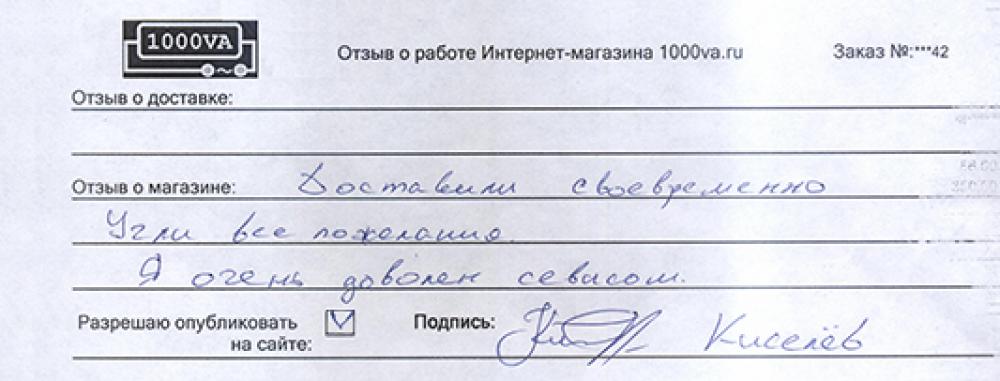 1000VA
Отзыв о работе Интернет-магазина 1000va.ru
Заказ №:***42
Отзыв о доставке:
Отзыв о магазине: Доставили своевременно
Угли все пожелания.
Я очень доволен севисом.
Разрешаю опубликовать
на сайте:
Подпись: Киселёв